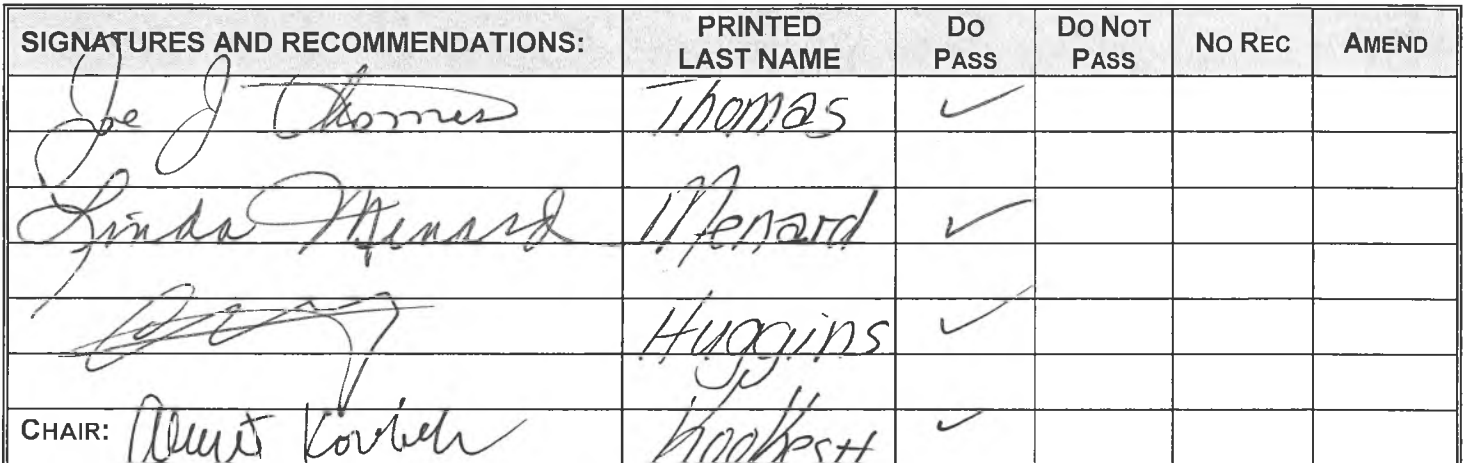 SIGNATURES AND RECOMMENDATIONS: PRINTED LAST NAME DO PASS DO NOT PASS NO REC AMEND
Joe J Thomas Thomas ✓
Linda Menard Menard ✓
Huggins ✓
CHAIR: Albert Kookesh Kookesh ✓